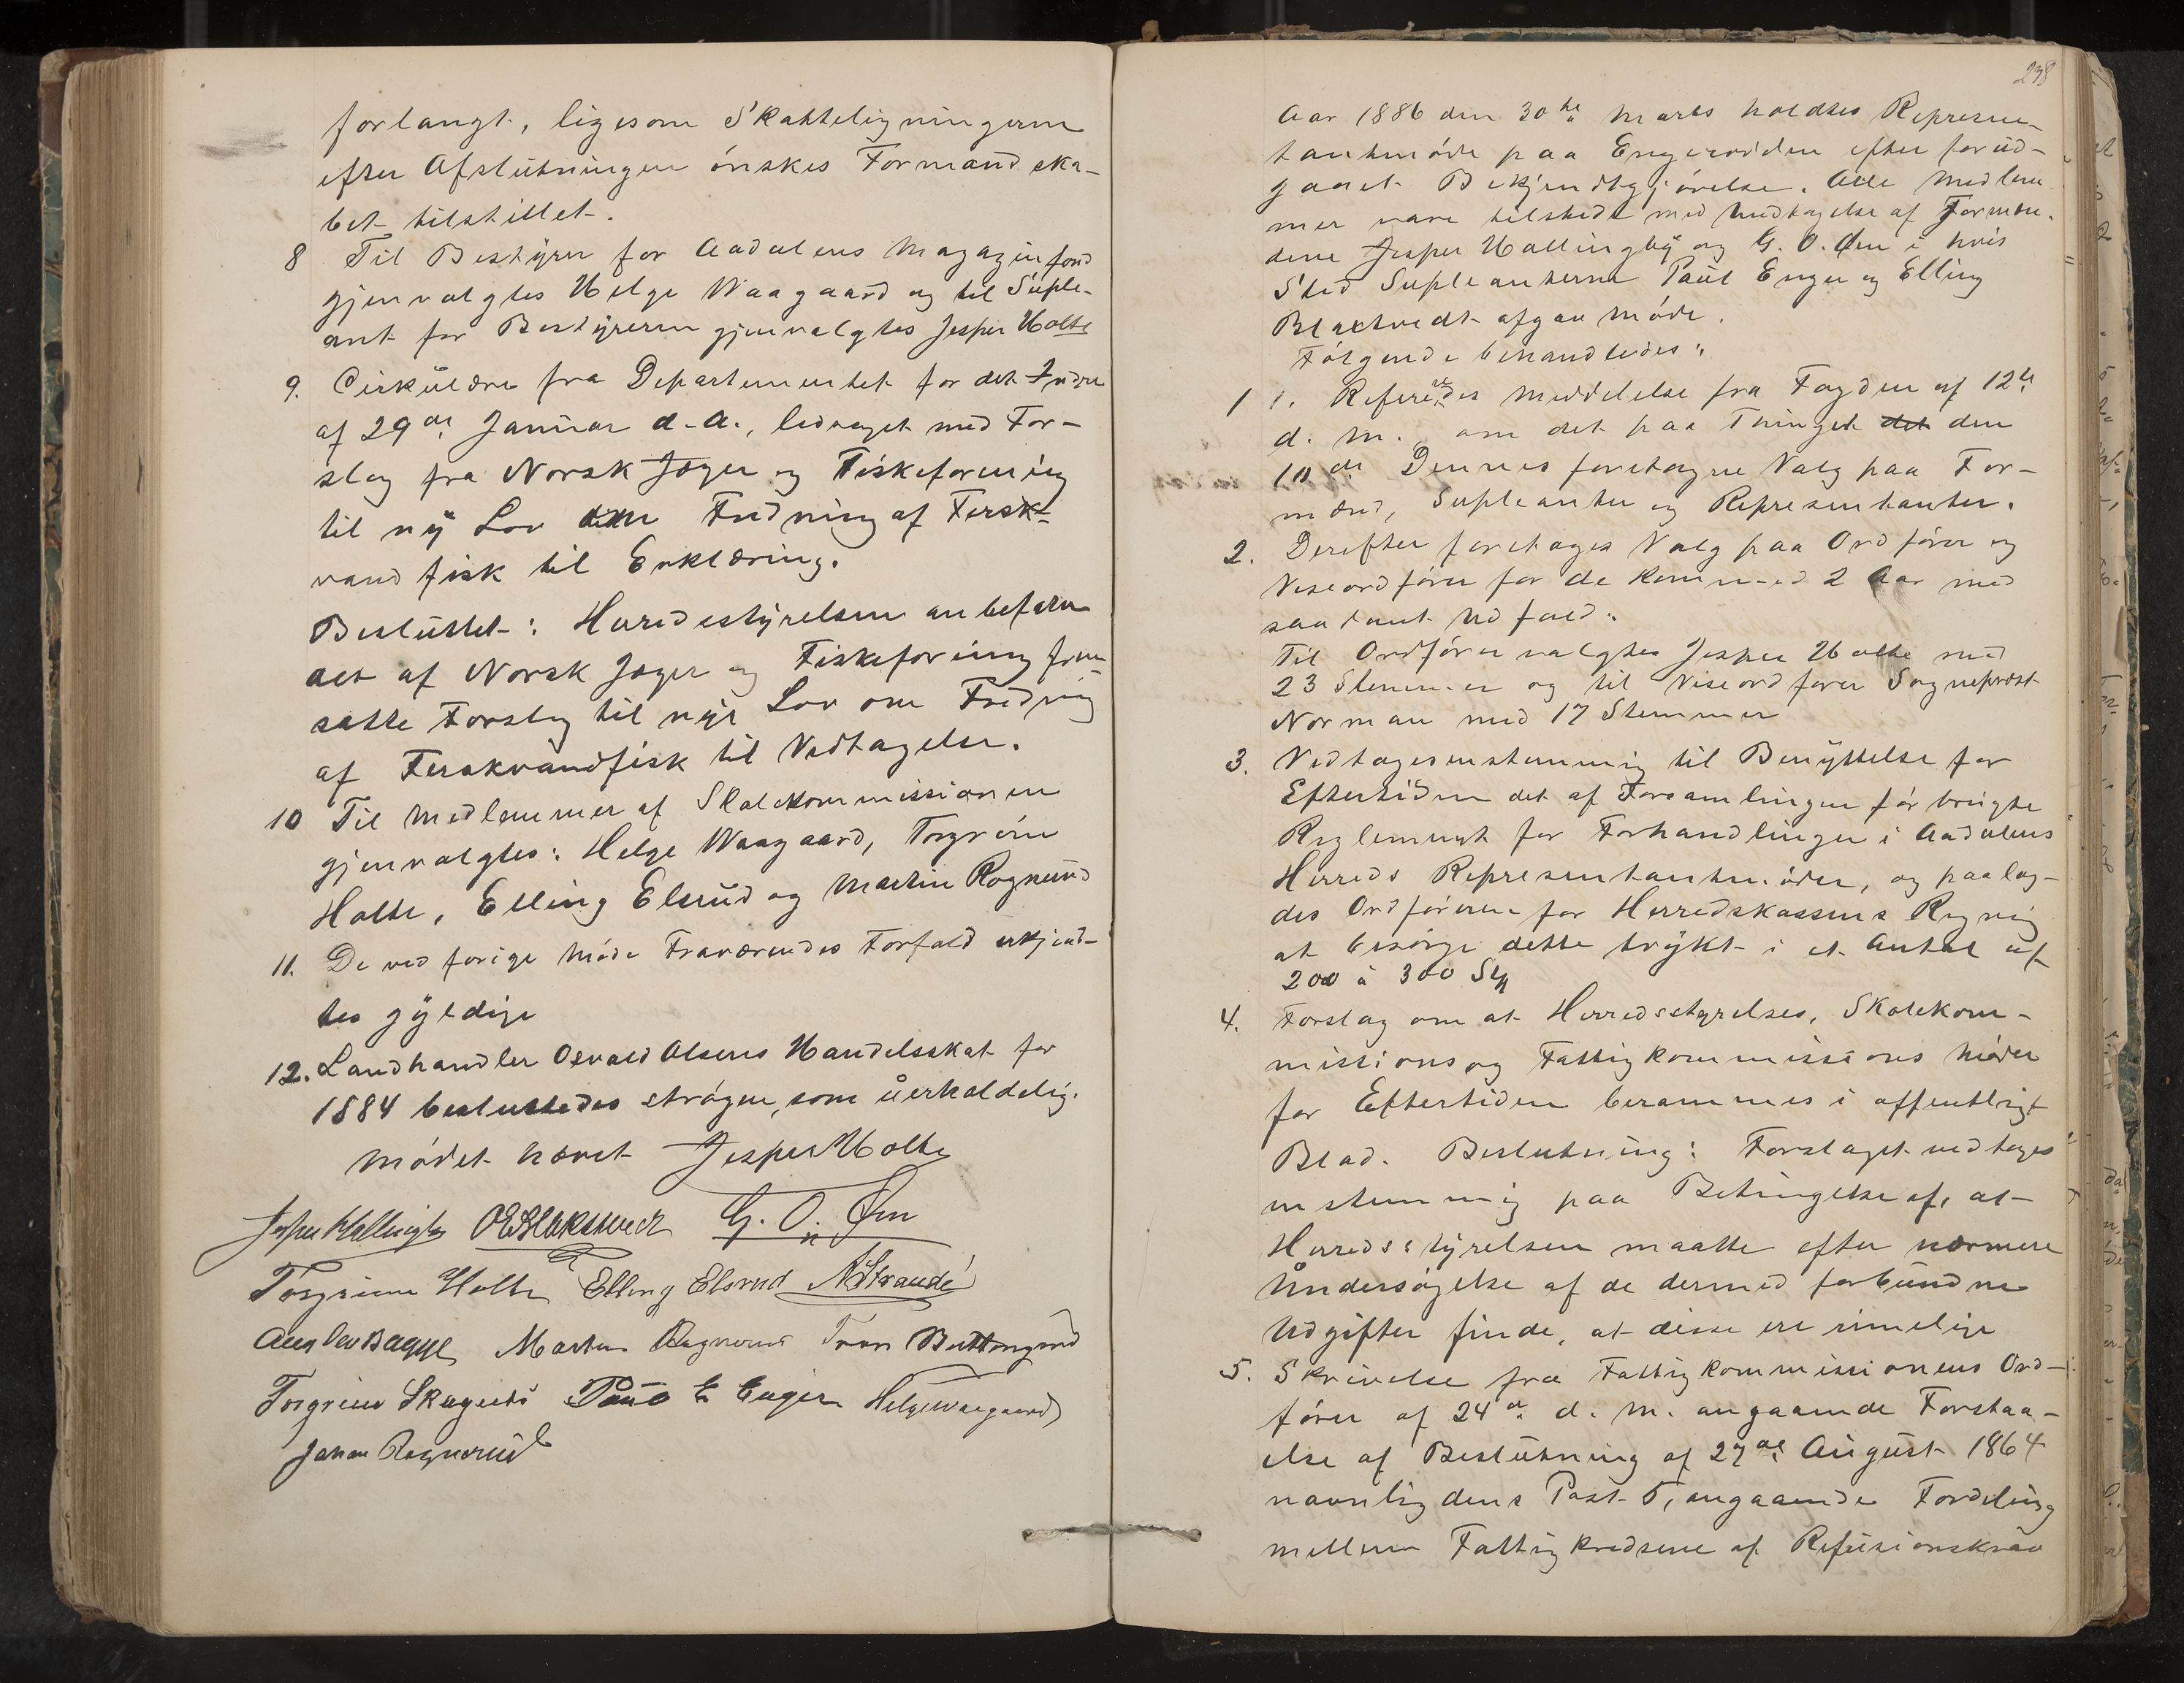 forlangt, ligesom Skatteligningerne
efter Afslutningen ønskes Formandska-
bet tilstillet.
8 Til Bestyrer for Aadalens Magazinfond
gjenvalgtes Helge Waagaard og til Suple-
ant for Bestyreren gjenvalgtes Jesper Holte
9. Cirkulære fra Departementet for det Indre
af 29de Januar d. A., ledsaget med For-
slag fra Norsk Jæger og Fiskeforening
til ny Lov om Fredning af Fersk-
vandfisk til Erklæring.
Besluttet: Herredsstyrelsen anbefaler
det af Norsk Jæger og Fiskeforening frem-
satte Forslag til nye Lov om Fredning
af Ferskvandfisk til Vedtagelse.
10 Til Medlemmer af Skolekommissionen
gjenvalgtes: Helge Waagaard, Torgrim
Holte, Elling Elsrud og Martin Rognerud
11. De ved forige Møde Fraværendes Forfald erkjend-
tes gyldige
12. Landhandler Osvald Olsens Handelsskat for
1884 besluttedes strøgen, som uerholdelig.
Mødet hævet Jesper Holte
Jesper Hallingby O E Blakstvedt G. O. Øen
Torgrim Holte Elling Elsrud N Strande
Martin Rognerud Iver Buttingsrud
Torgrim Skagnæs Paul E Enger Helge Waagaard
Johan Rognerud
238
Aar 1886 den 30te Marts holdtes Represen-
tantmøde paa Engerodden efter forud-
gaaet Bekjendtgjørelse. Alle Medlem-
mer vare tilstede med Undtagelse af Formæn-
dene Jesper Hallingby og G. O. Øen i hvis
Sted Supleanterne Paul Enger og Elling
Blakstvedt afgav Møde.
Følgende behandledes:
1 1. Refereredes Meddelelse fra Fogden af 12te
d. M. om det paa Thinget det den
10de Dennes foretagne Valg paa For-
mænd, Supleanter og Representanter.
2. Derefter foretages Valg paa Ordfører og
Viseordfører for de kommend 2 Aar med
saadant Udfald:
Til Ordfører valgtes Jesper Holte med
23 Stemmer og til Viseordfører Sogneprest
Norman med 17 Stemmer
3. Vedtoges enstemmig til Benyttelse for
Eftertiden det af Forsamlingen før brugte
Reglement for Forhandlinger i Aadalens
Herreds Representantmøder, og paalag-
des Ordføreren for Herredskassens Regning
at besørge dette trykt i et Antal af
200 à 300 Stk
4. Forslag om at Herredsstyrelses, Skolekom-
missions og Fattigkommissions Møder
for Eftertiden berammes i offentligt
Blad. Beslutning: Forslaget vedtages
enstemmig paa Betingelse af, at
Herredsstyrelsen maatte efter nærmere
Undersøgelse af de dermed forbundne
Udgifter finde, at disse ere rimelige
5. Skrivelse fra Fattigkommissionens Ord-
fører af 24de d. M. angaaende Forstaa-
else af Beslutning af 27de August 1864
navnlig dens Post 5, angaaende Fordeling
mellem Fattigkredsene af Refusionskrav